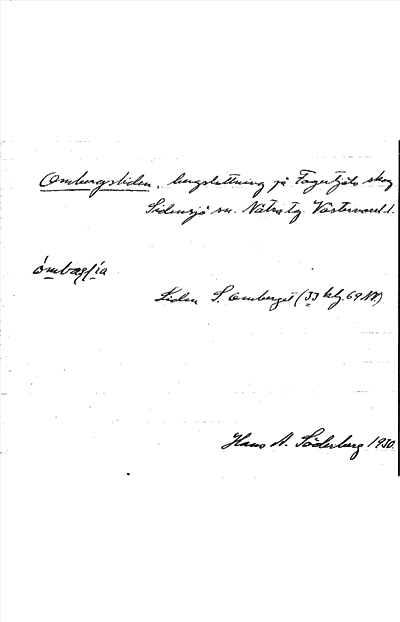 Ombergsliden, bergsluttning på Fagersjös skog
Sidensjö sn. Nätra tg. Västernorrl. l.
Liden S. Omberget (33 blg. 69 NV)
Hans A. Söderberg 1930.